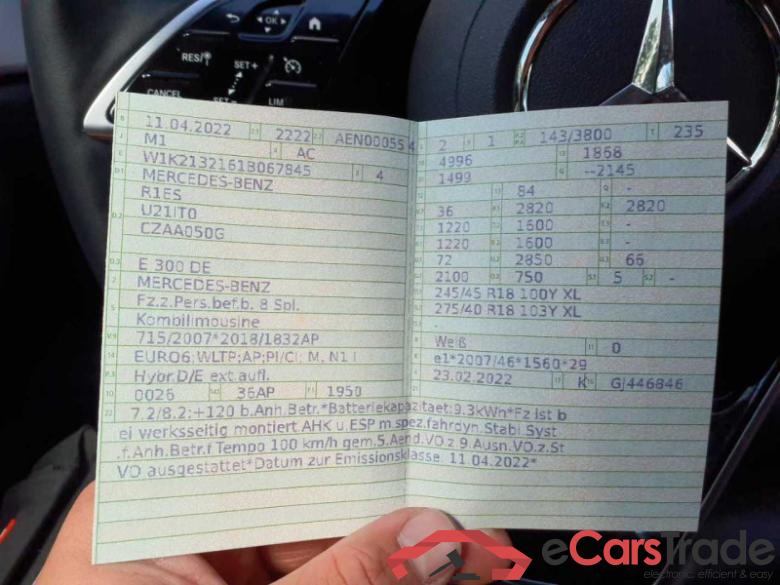 RES/
SET+
CANCEL
SET-
LIM
OK
11.04.2022 2222 AEN00055 4
M1 AC
W1K2132161B067845 4
MERCEDES-BENZ
R1ES
U21IT0
CZAA050G
E 300 DE
MERCEDES-BENZ
Fz.z.Pers.bef.b. 8 Spl.
Kombilimousine
715/2007*2018/1832AP
EURO6;WLTP;AP;PI/CI; M, N1 I
Hybr.D/E ext.aufl.
0026 36AP 1950
2 1 143/3800 235
4996 1868
1499 --2145
84 -
36 2820 2820
1220 1600 -
1220 1600 -
72 2850 66
2100 750 5 -
245/45 R18 100Y XL
275/40 R18 103Y XL
-
Weiß 0
e1*2007/46*1560*29
23.02.2022 K GJ446846
7.2/8.2:+120 b.Anh.Betr.*Batteriekapazitaet:9.3kWh*Fz ist b
ei werksseitig montiert.AHK u.ESP m spez.fahrdyn.Stabi.Syst
.f.Anh.Betr.f Tempo 100 km/h gem.5.Aend.VO.z 9.Ausn.VO.z.St
VO ausgestattet*Datum zur Emissionsklasse: 11.04.2022*
eCarsTrade
electronic, efficient & easy